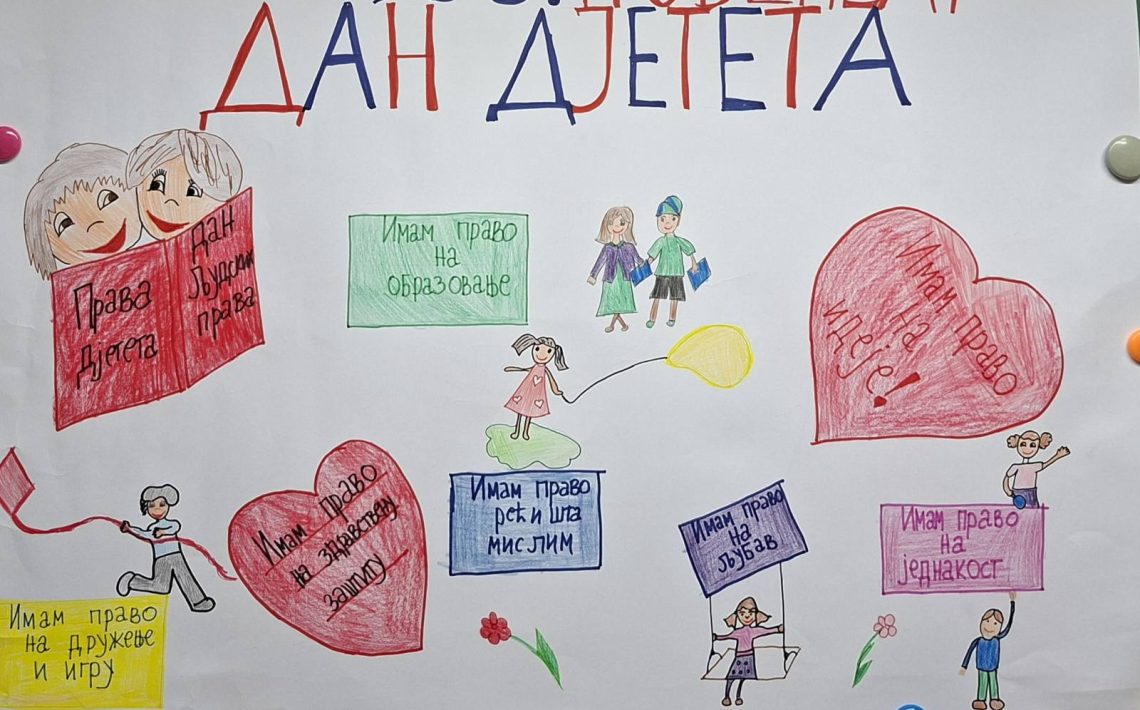 ДАН ДЈЕТЕТА
Права
дјетета
Дан
људских
права
Имам право
на
образовање
Имам право
на
идеје!
Имам право
на здравствену
заштиту
Имам право
рећи шта
мислим
Имам право
на
љубав
Имам право
на
једнакост
Имам право
на дружење
и игру